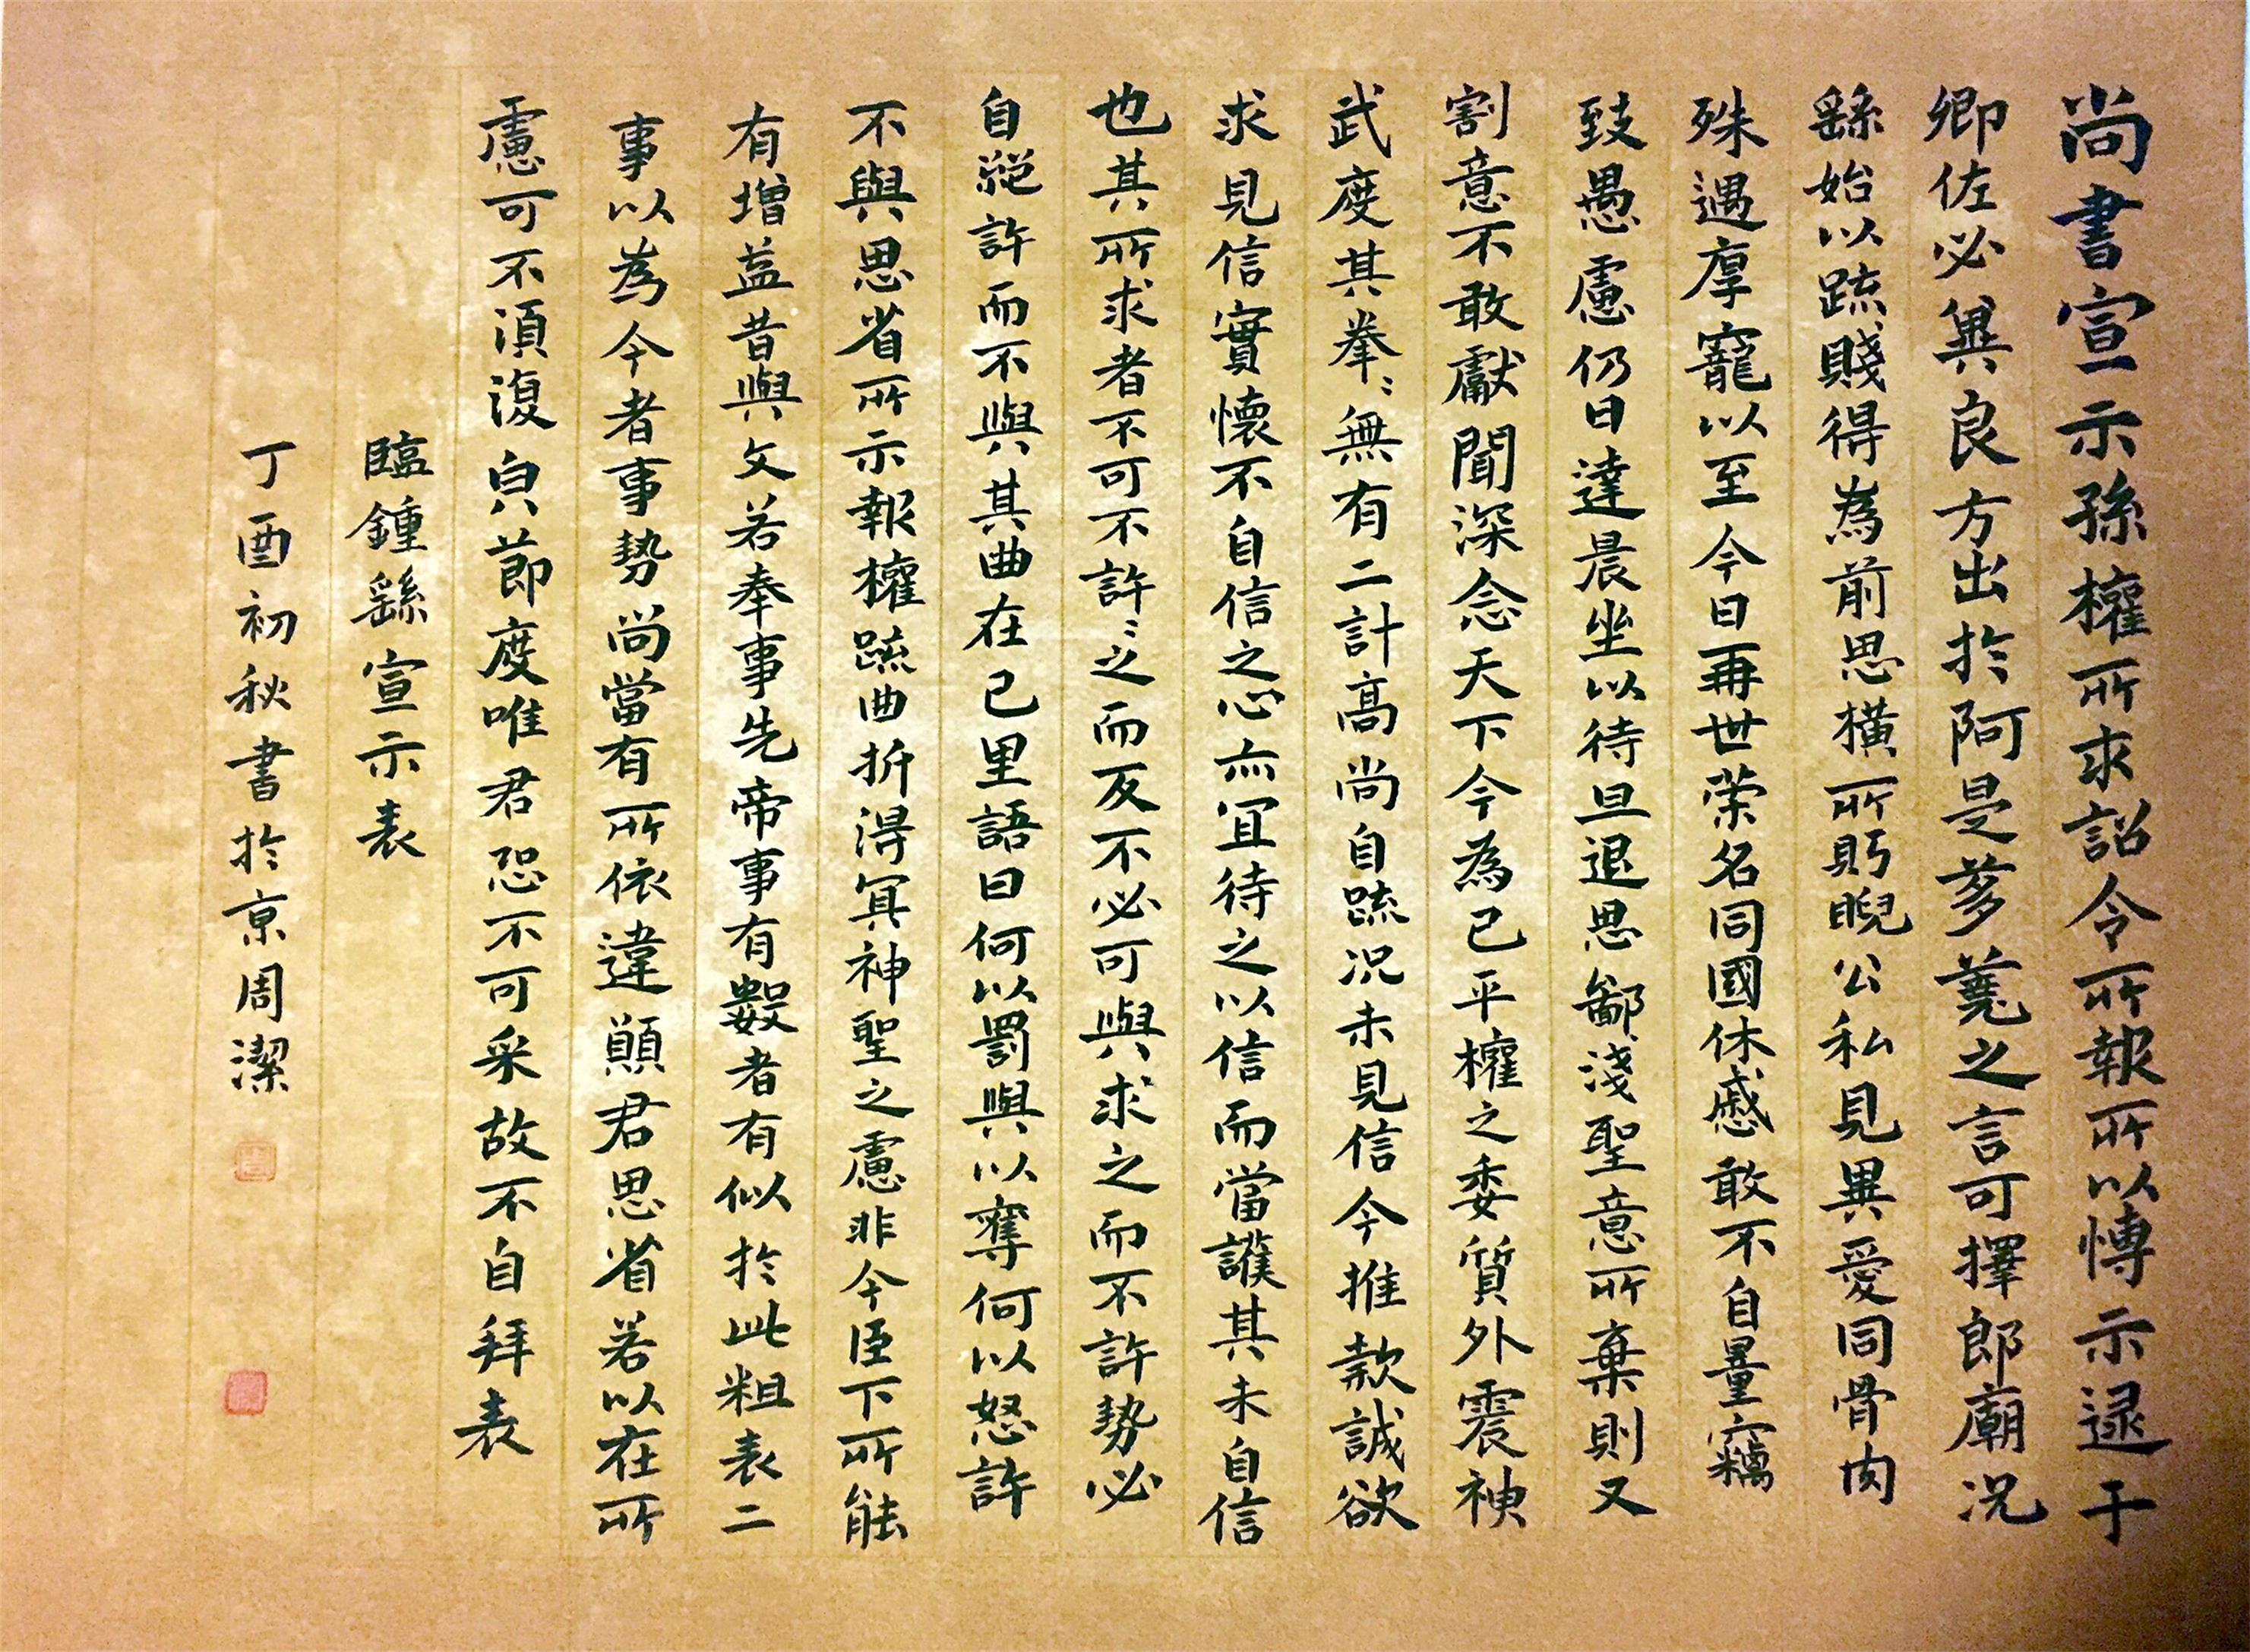 尚書宣示孫權所求詔令所報所以博示逮于
卿佐必冀良方出於阿是芻蕘之言可擇郎廟況
繇始以疏賤得為前思橫所眄睨公私見異愛同骨肉
殊遇厚寵以至今日再世榮名同國休慼敢不自量竊
致愚慮仍日達晨坐以待旦退思鄙淺聖意所棄則又
割意不敢獻聞深念天下今為已平權之委質外震神
武度其拳〻無有二計高尚自疏況未見信今推款誠欲
求見信實懷不自信之心亦宜待之以信而當護其未自信
也其所求者不可不許〻之而反不必可與求之而不許勢必
自絕許而不與其曲在己里語曰何以罰與以奪何以怒許
不與思省所示報權疏曲折得宜神聖之慮非今臣下所能
有增益昔與文若奉事先帝事有數者有似於此粗表二
事以為今者事勢尚當有所依違願君思省若以在所
慮可不須復皃節度唯君恐不可采故不自拜表
臨鍾繇宣示表
丁酉初秋書於京周潔